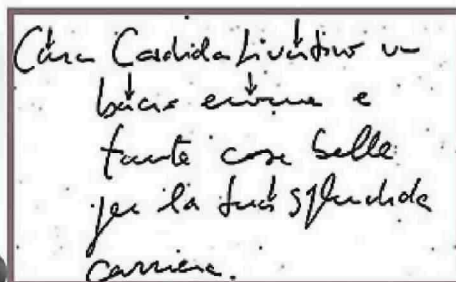 Cara Candida Livatino un
bacio enorme e
tante cose belle
per la tua splendida
carriera.